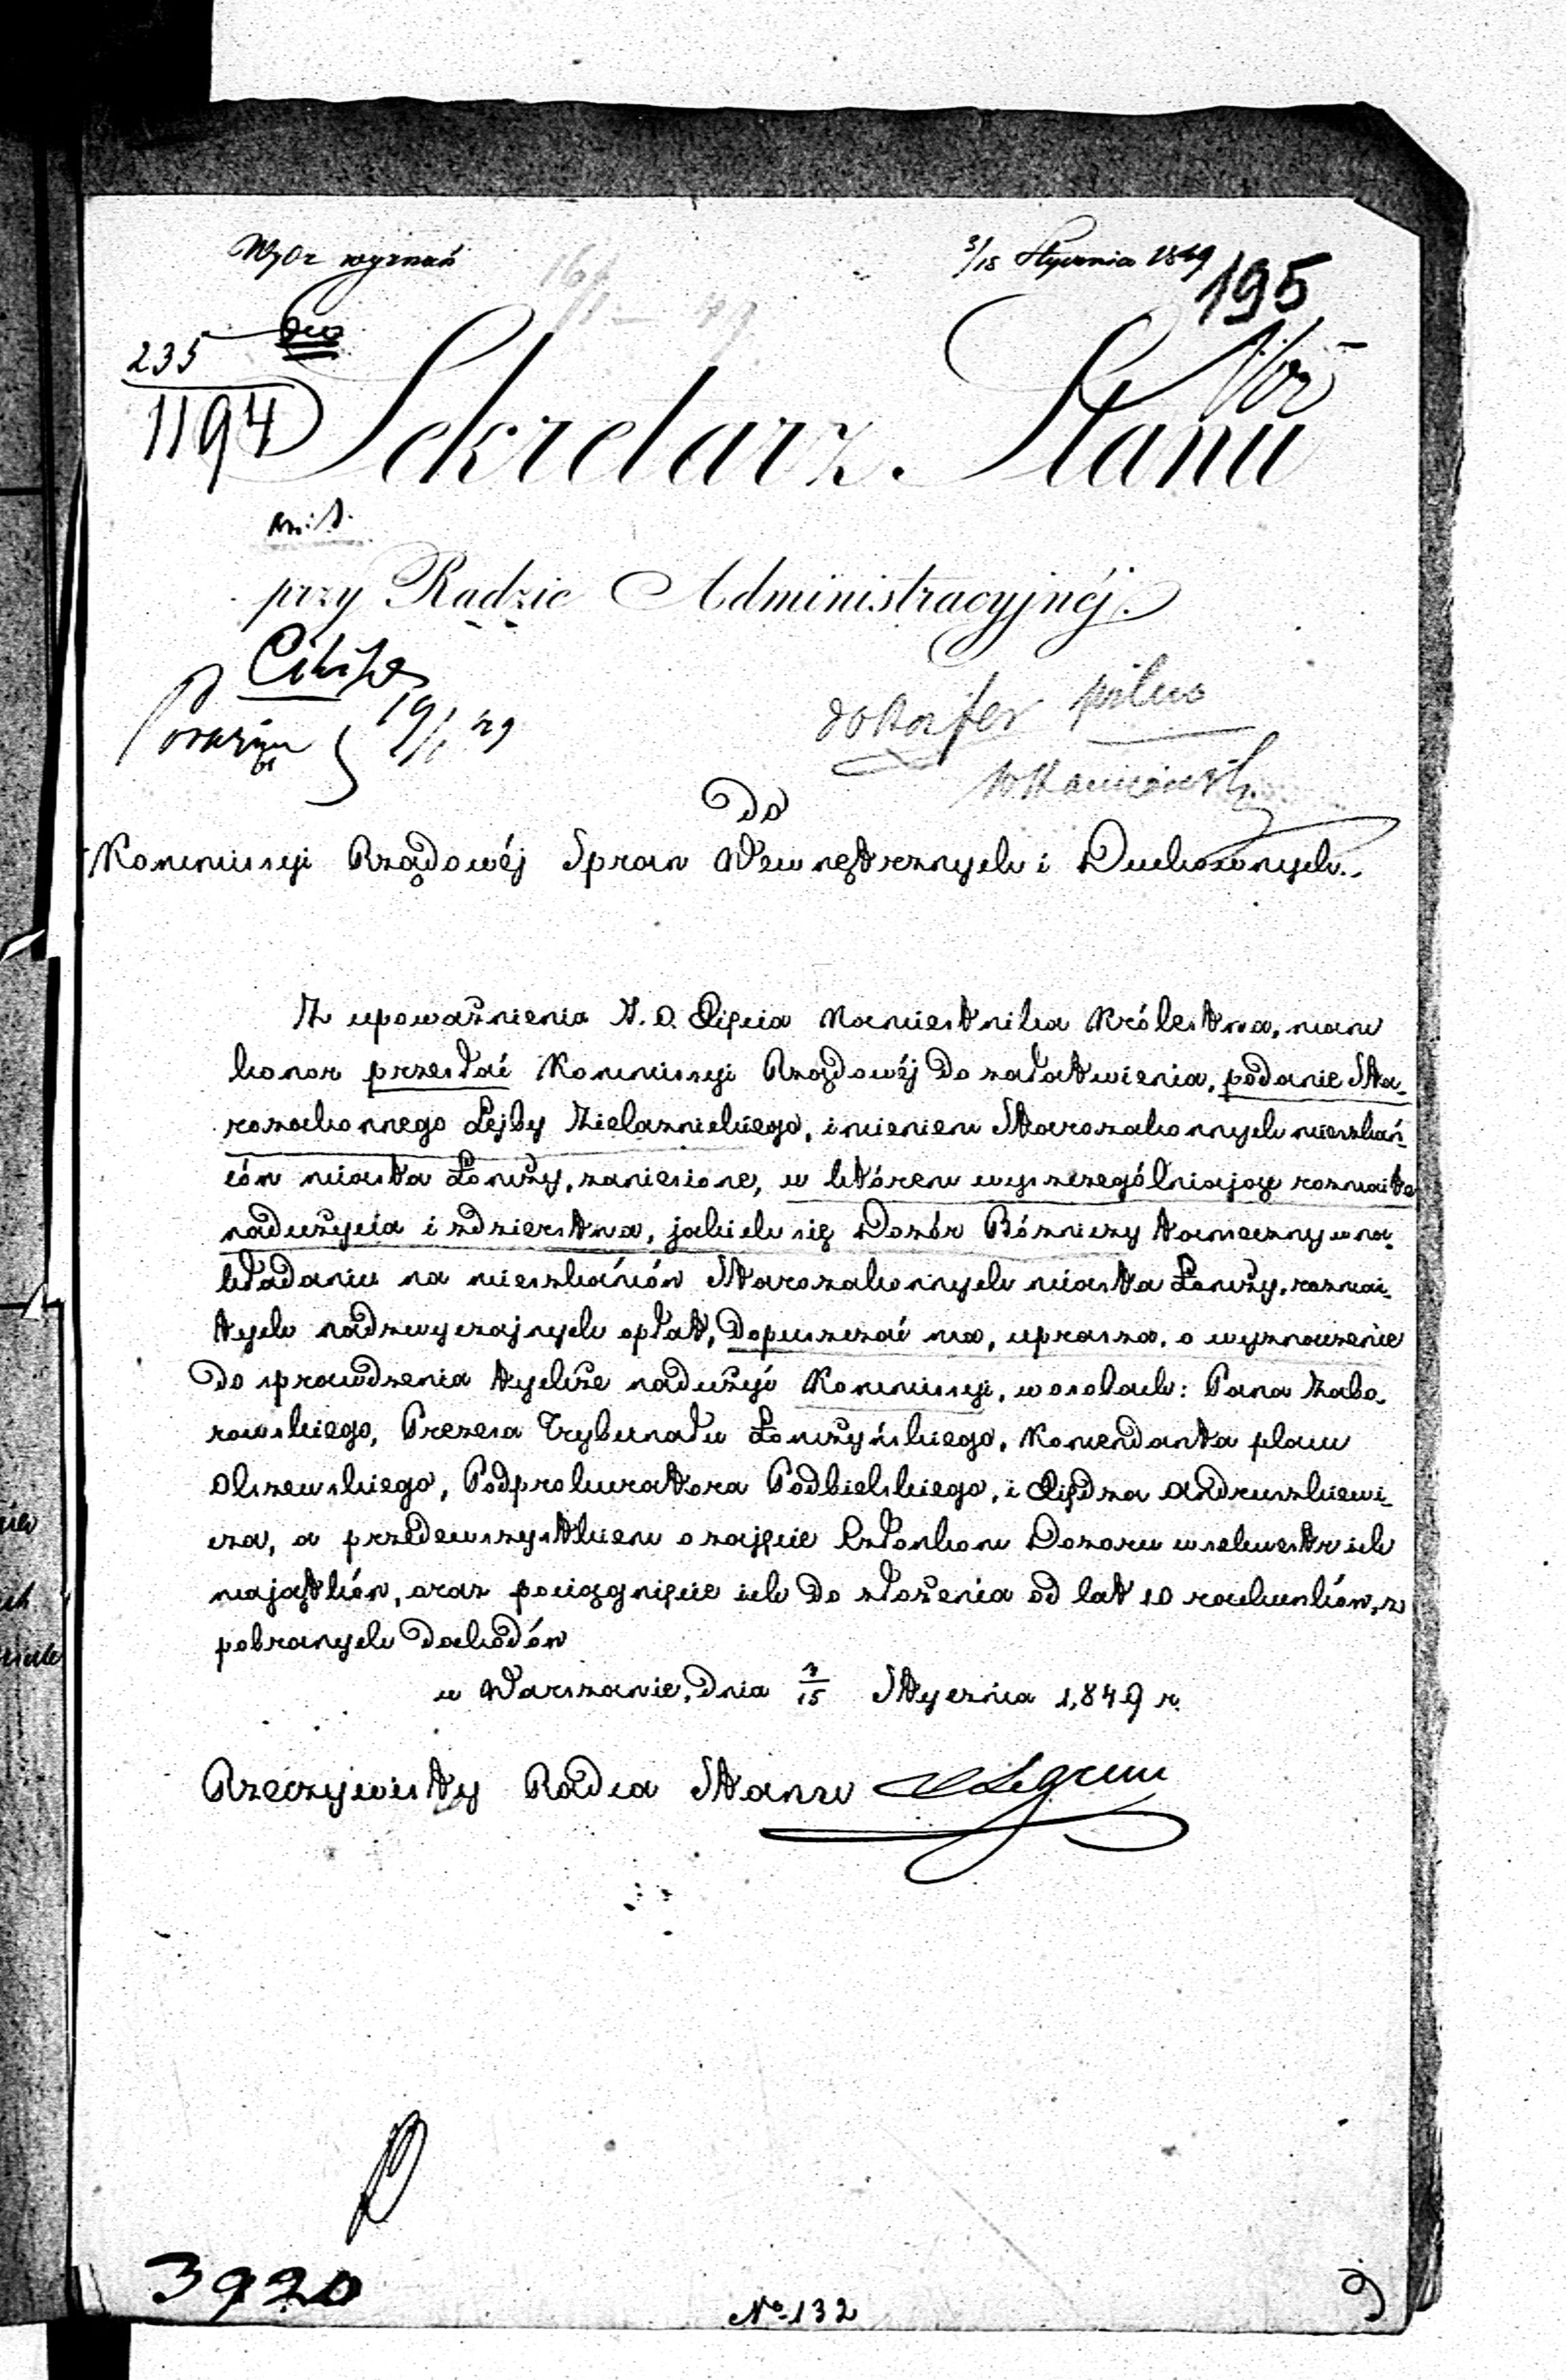 Wydz wyznań
3/15 Stycznia 1849
195
235
1194
Sekretarz Stanu
przy Radzie Administracyjnéj.
19/1 49
pilne
Do
Kommissyi Rządowéj Spraw Wewnętrznych i Duchownych.
Z upoważnienia J. O. Xięcia Namiestnika Królestwa, mam
honor przesłać Kommissyi Rządowéj do załatwienia, podanie Sta-
rozakonnego Lejby Zielaznickiego, imieniem Starozakonnych mieszkań-
ców miasta Łomży, zaniesione, w którem wyszczególniając rozmaite
nadużycia i zdzierstwa, jakich się Dozór Bóżniczy tameczny w na-
kładaniu na mieszkańców Starozakonnych miasta Łomży, rozmai-
tych nadzwyczajnych opłat, dopuszczać ma, uprasza, o wyznaczenie
do sprawdzenia tychże nadużyć Kommissyi, w osobach: Pana Zabo-
rowskiego, Prezesa Trybunału Łomżyńskiego, Komendanta placu
Olszewskiego, Podprokuratora Podbielskiego, i Xiędza Andruszkiewi-
cza, a przedewszystkiem o zajęcie Członkom Dozoru w sekwestr ich
majątków, oraz pociągnięcie ich do złożenia od lat 10 rachunków, z
pobranych dochodów
w Warszawie, dnia 3/15 Stycznia 1,849 r.
Rzeczywisty Radca Stanu
3920
No 132